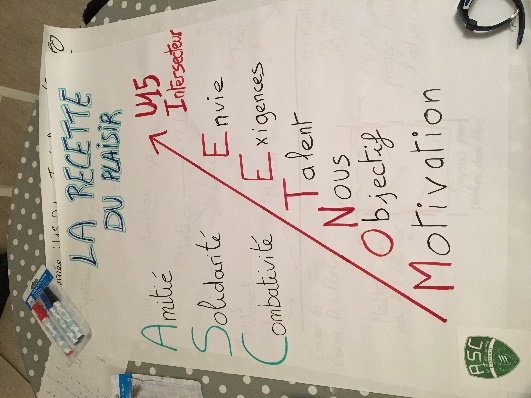 LA RECETTE
DU PLAISIR
U15
Intersecteur
Amitié
Solidarité
Combativité
Envie
Exigences
Talent
Nous
Objectif
Motivation
ASC